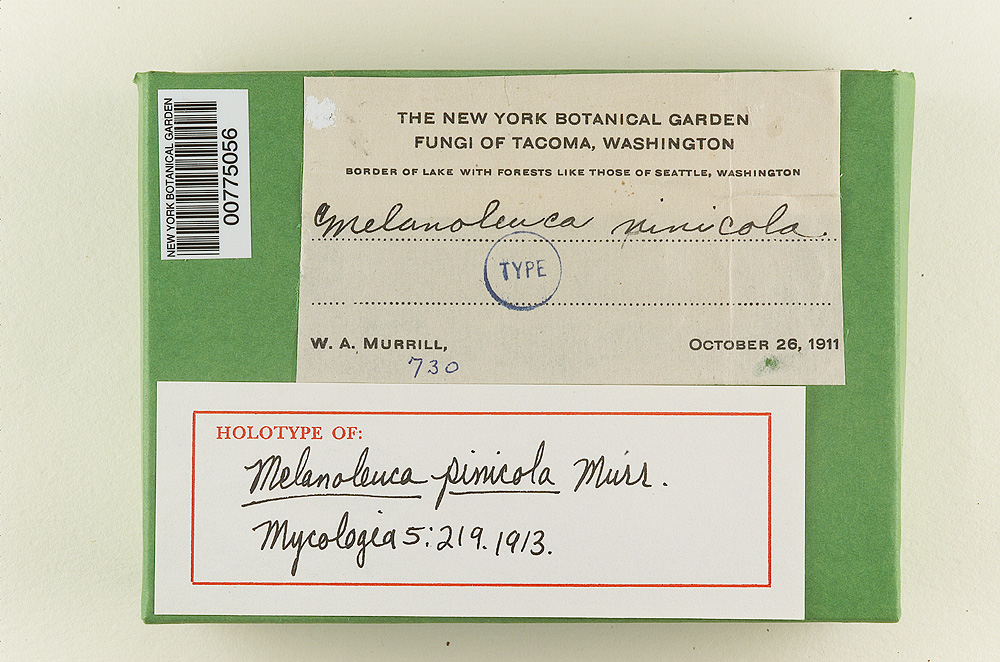 NEW YORK BOTANICAL GARDEN
00775056
THE NEW YORK BOTANICAL GARDEN
FUNGI OF TACOMA, WASHINGTON
BORDER OF LAKE WITH FORESTS LIKE THOSE OF SEATTLE, WASHINGTON
Melanoleuca pinicola.
TYPE
W. A. MURRILL,
OCTOBER 26, 1911
730
HOLOTYPE OF:
Melanoleuca pinicola Murr.
Mycologia 5:219. 1913.